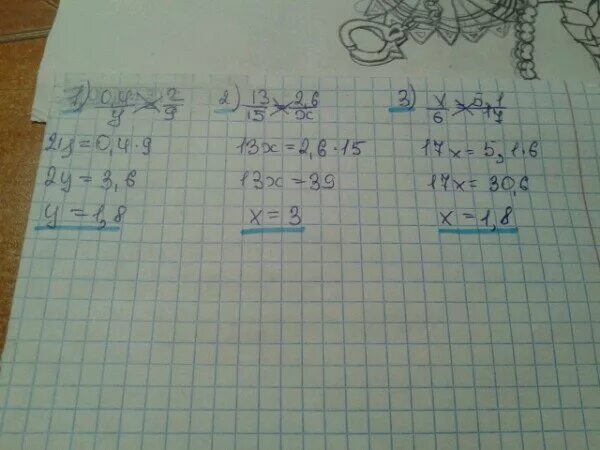 1) 0,4/y = 2/9
2y = 0,4 · 9
2y = 3,6
y = 1,8
2) 13/15 = 2,6/x
13x = 2,6 · 15
13x = 39
x = 3
3) x/6 = 5,1/17
17x = 5,1 · 6
17x = 30,6
x = 1,8